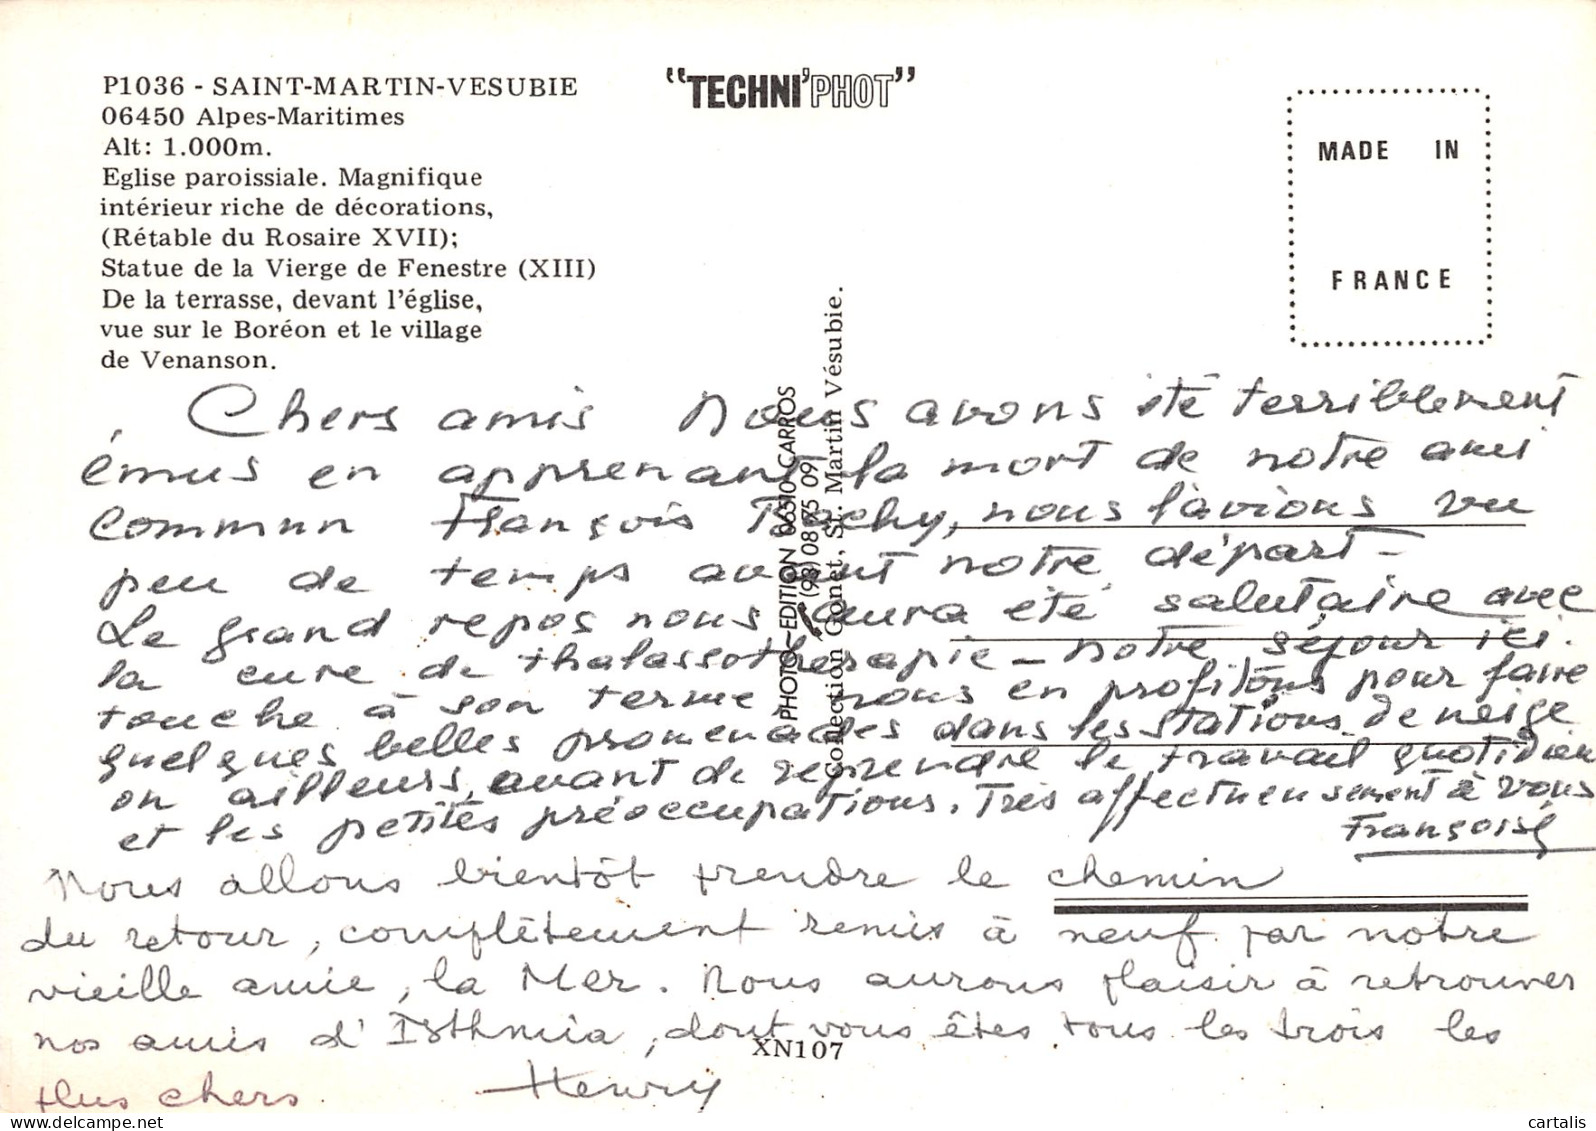 P1036 - SAINT-MARTIN-VESUBIE
06450 Alpes-Maritimes
Alt: 1.000m.
Eglise paroissiale. Magnifique
intérieur riche de décorations,
(Rétable du Rosaire XVII);
Statue de la Vierge de Fenestre (XIII)
De la terrasse, devant l'église,
vue sur le Boréon et le village
de Venanson.
"TECHNI'PHOT"
MADE IN
FRANCE
PHOTO-EDITION 06510 CARROS
(93) 08 75 09
Collection Gonet, St. Martin Vésubie.
Chers amis Nous avons été terriblement
émus en apprenant la mort de notre ami
commun François, nous l'avions vu
peu de temps avant notre départ -
Le grand repos nous aura été salutaire avec
la cure de thalassothérapie - notre séjour ici
touche à son terme nous en profitons pour faire
quelques belles promenades dans les stations de neige
on ailleurs, avant de reprendre le travail quotidien
et les petites préoccupations. Très affectueusement à vous
Françoise
Nous allons bientôt prendre le chemin
du retour, complètement remis à neuf par notre
vieille amie, la Mer. Nous aurons plaisir à retrouver
nos amis d'Isthmia, dont vous êtes tous les trois les
plus chers. Henry
XN107
cartalis